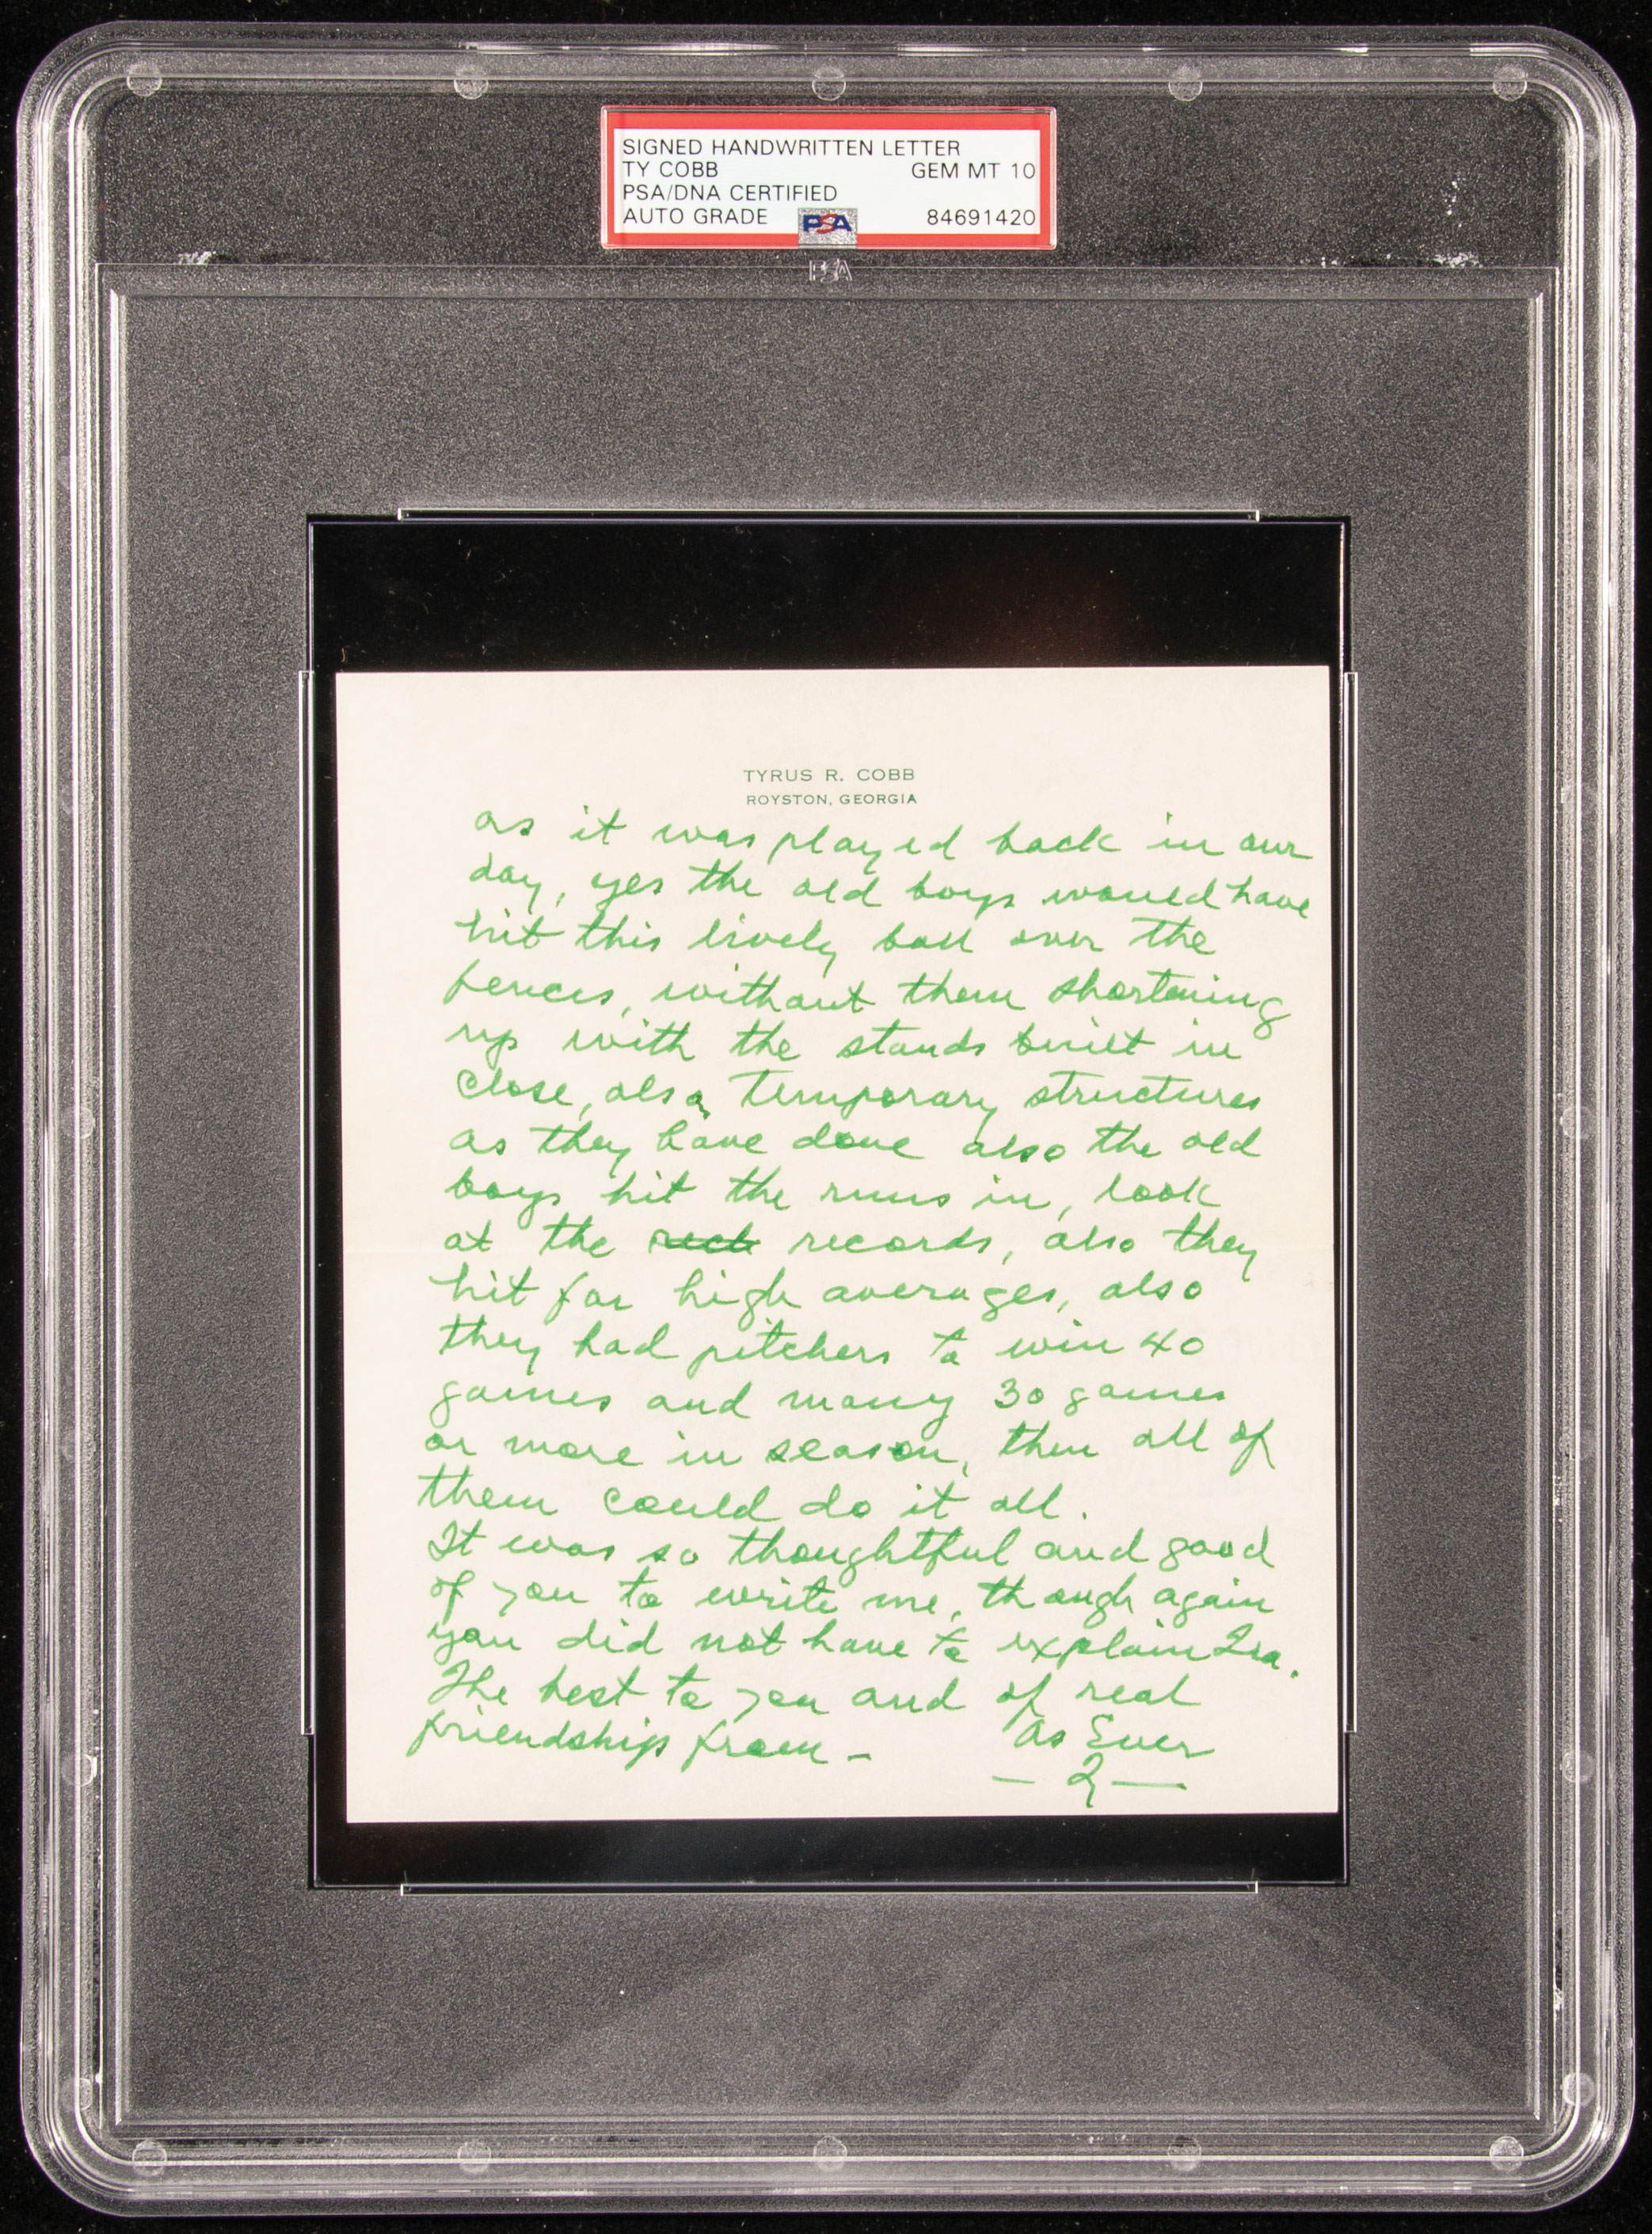 SIGNED HANDWRITTEN LETTER
TY COBB GEM MT 10
PSA/DNA CERTIFIED
AUTO GRADE PSA 84691420
PSA
TYRUS R. COBB
ROYSTON, GEORGIA
as it was played back in our
day, yes the old boys would have
hit this lively ball over the
fences, without them shortening
up with the stands built in
close, also, temporary structures
as they have done also the old
boys hit the runs in, look
at the records, also they
hit for high averages, also
they had pitchers to win 40
games and many 30 games
or more in season, then all of
them could do it all.
It was so thoughtful and good
of you to write me, though again
you did not have to explain Ira.
The best to you and of real
friendship from - As Ever
— 2 —